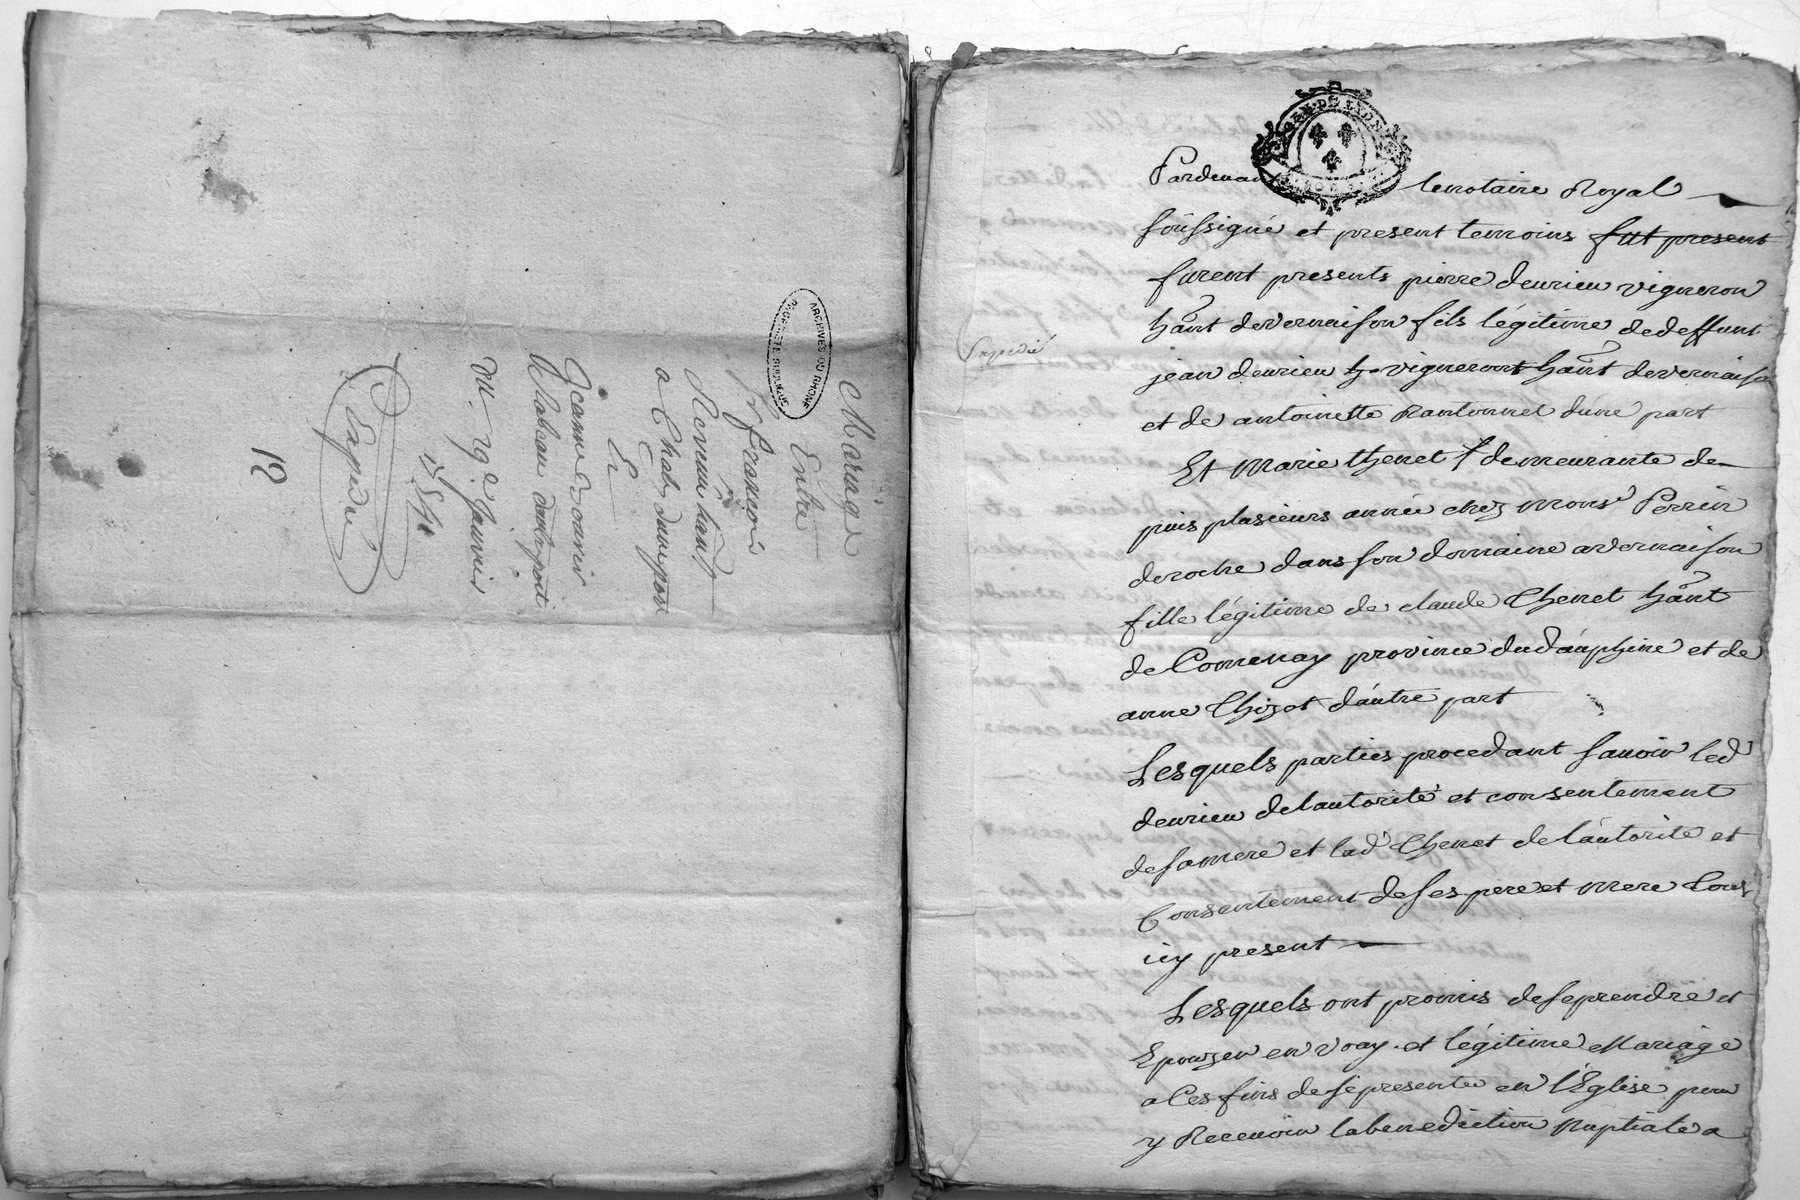 Mariage
Entre
françois
a
Et
Jeanne
du 29e Janvier
Expedié
12
ARCHIVES DU RHONE
PROPRIETE PUBLIQUE
GEN. DE LYON
Expedié
Pardevant le notaire Royal
soussigné et present temoins fut present
furent presents pierre deurieu vigneron
hant de vernaison fils légitime de deffunt
jean deurieu h vigneront hant de vernaison
et de antoinette Rantonnet dune part
Et Marie thenet f demeurante de
puis plasieurs année chez monsr Perrin
deroche dans son domaine a vernaison
fille légitime de claude Thenet hant
de Comenay province du dáuphine et de
anne Chizot dáutre part
Lesquels parties procedant savoir led
deurieu de lautorité et consentement
de sa mere et lad Thenet de láutorite et
Consentement de ses pere et mere tous
icy present
Lesquels ont promis de se prendre et
Epouzer en vray et légitime Mariage
a Ces fins de se presenter en l'Eglise pour
y Recevoir la benediction Nuptiale a